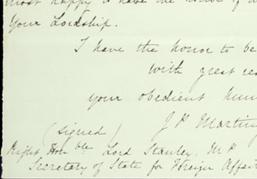 most happy to have the honor of
Your Lordship.
I have the honor to be
with great res
your obedient hum
(signed) J P Martin
Right Honble Lord Stanley, MP
Secretary of State for Foreign Affairs